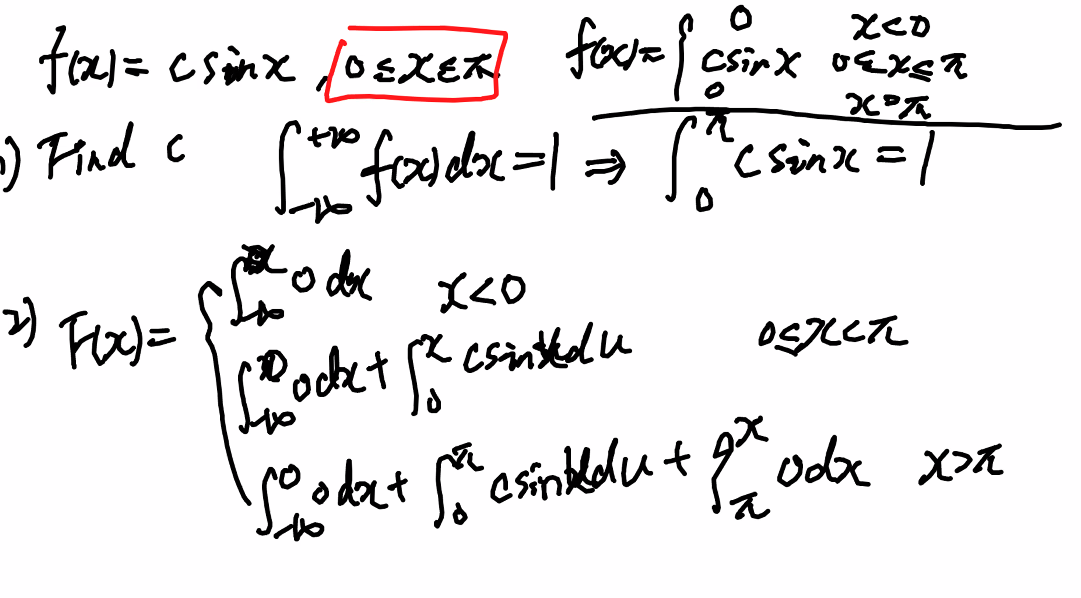 f(x) = c sinx , 0 ≤ x ≤ π
f(x) = { 0 x<0
c sinx 0 ≤ x ≤ π
0 x>π
1) Find c ∫_{-∞}^{+∞} f(x) dx = 1 ⇒ ∫_0^π c sinx = 1
2) F(x) = { ∫_{-∞}^x 0 dx x<0
∫_{-∞}^0 0 dx + ∫_0^x c sin u du 0 ≤ x < π
∫_{-∞}^0 0 dx + ∫_0^π c sin u du + ∫_π^x 0 dx x>π